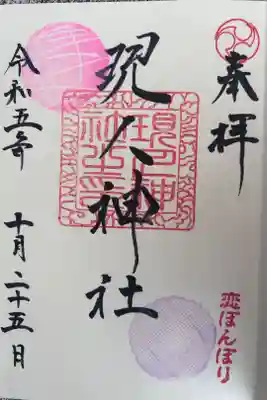 奉拝
現人神社
令和五年 十月二十五日
恋ぼんぼり